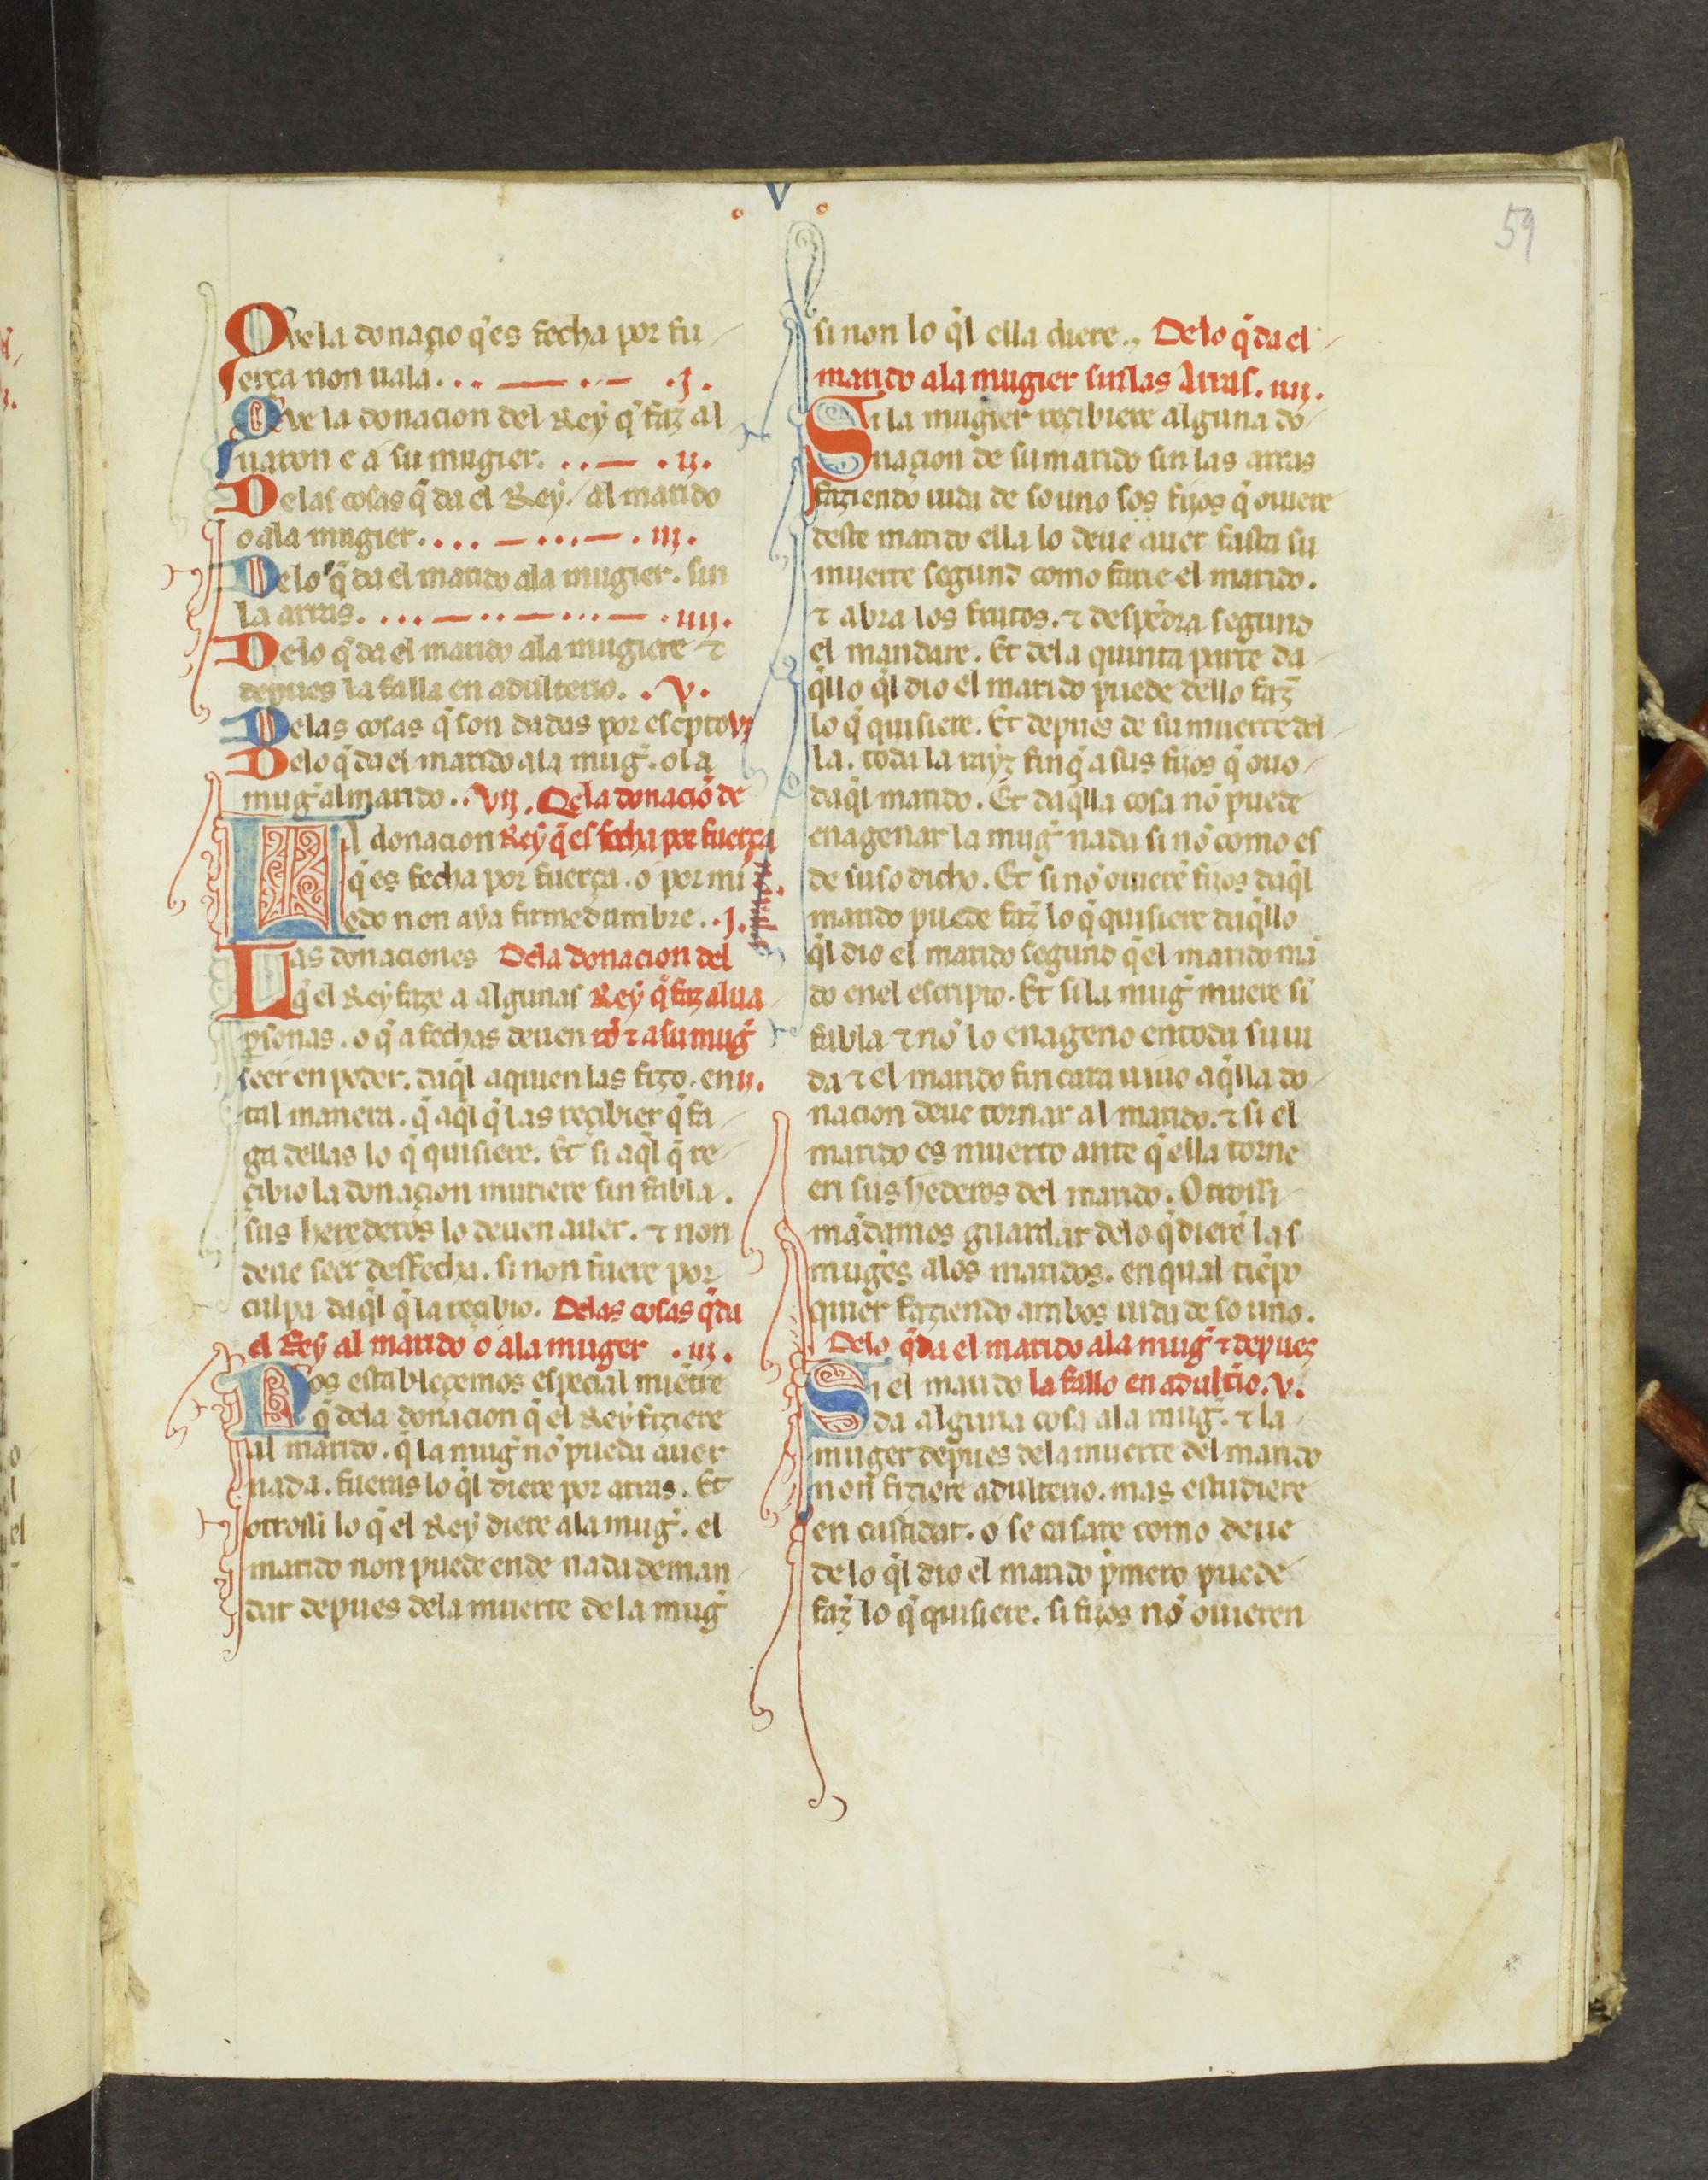 V
59
Que la donaçio q̃ es fecha por fu
erça non uala. .j.
Que la donacion del Rey q̃ faz al
uaron e a su mugier. .ij.
De las cosas q̃ da el Rey. al marido
o ala mugier. .iij.
De lo q̃ da el marido ala mugier. sin
la arras. .iiij.
De lo q̃ da el marido ala mugiere ⁊
depues la falla en adulterio. .v.
De las cosas q̃ son dadas por escⁱpto vi
De lo q̃ da el marido ala mug̃. o la
mug̃ al marido. .vij. De la donació de
LA donacion Rey q̃ es fecha por fuerça
q̃ es fecha por fuerça. o por mi
edo non aya firmedumbre. .j.
Las donaciones Dela donacion del
q̃ el Rey faze a algunas Rey q̃ faz al ua
ꝑsonas. o q̃ a fechas deuen ró ⁊ a su mug̃
seer en poder. daq̃l a quien las fizo. en ij.
tal manera. q̃ aq̃l q̃ las reçibier q̃ fa
ga dellas lo q̃ quisiere. Et si aq̃l q̃ re
çibio la donaçion muriere sin fabla.
sus herederos lo deuen auer. ⁊ non
deue seer desfecha. si non fuere por
culpa daq̃l q̃ la reçibio. Delas cosas q̃ da
el Rey al marido o ala muger .iij.
Nos establecemos especial miẽtre
q̃ dela donacion q̃ el Rey fiziere
al marido. q̃ la mug̃ nõ pueda auer
nada. fueras lo q̃l diere por arras. Et
otrossi lo q̃ el Rey diere ala mug̃. el
marido non puede ende nada deman
dar depues dela muerte dela mug̃
si non lo q̃l ella diere. De lo q̃ da el
marido ala mugier sin las Arras. iiij.
Si la mugier reçibiere alguna do
naçion de su marido sin las arras
faziendo uida de so uno sos fijos q̃ ouiere
deste marido ella lo deue auer fasta su
muerte segund como farie el marido.
⁊ abra los frutos. ⁊ despẽdra segund
el mandare. Et dela quinta parte da
q̃llo q̃l dio el marido puede dello faz̃
lo q̃ quisiere. Et depues de su muerte del
la. toda la rayz finq̃ a sus fijos q̃ ouo
daq̃l marido. Et daq̃lla cosa nõ puede
enagenar la mug̃ nada si nõ como es
de suso dicho. Et si nõ ouiere fijos daq̃l
marido puede faz̃ lo q̃ quisiere daq̃llo
q̃l dio el marido segund q̃ el marido mã
do enel escripto. Et si la mug̃ muere sĩ
fabla ⁊ nõ lo enageno en toda su ui
da ⁊ el marido fincara uiuo aq̃lla do
nacion deue tornar al marido. ⁊ si el
marido es muerto ante q̃ ella torne
en sus hederos del marido. Otrossi
mãdamos guardar delo q̃ dierẽ las
mug̃es alos maridos. en qual tiẽpo
quier faziendo ambos uida de so uno.
De lo q̃ da el marido ala mug̃ ⁊ depuez
Si el marido la fallo en adulťio. v.
da alguna cosa ala mug̃. ⁊ la
muger depues dela muerte del marido
non fiziere adulterio. mas estudiere
en castidat. o se casare como deue
de lo q̃l dio el marido pⁱmero puede
faz̃ lo q̃ quisiere. si fijos nõ ouieren